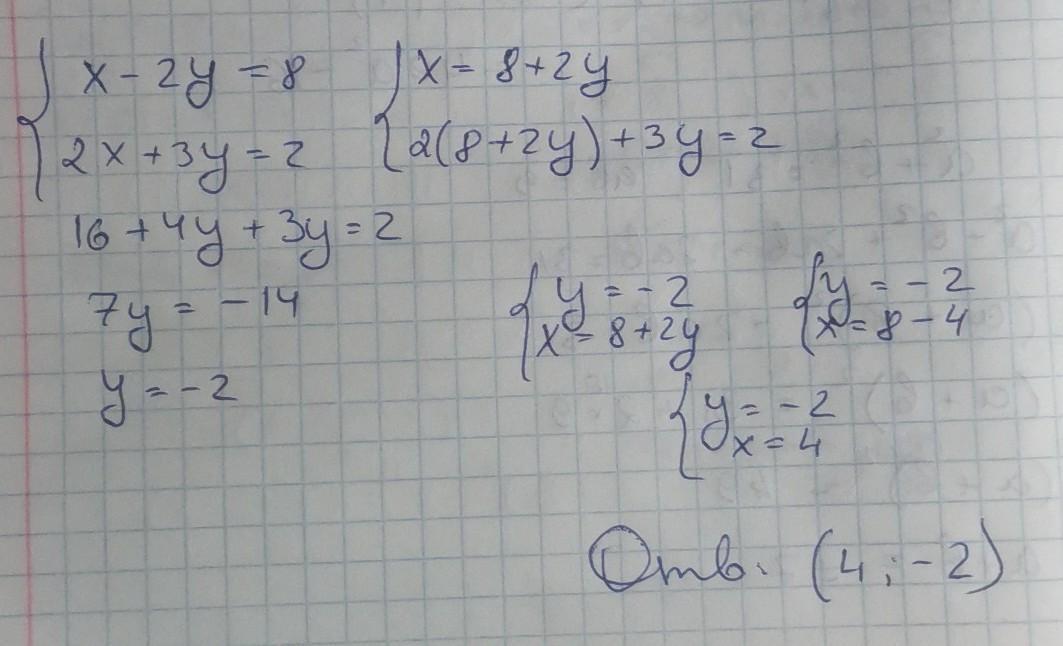 { x - 2y = 8 { x = 8 + 2y
2x + 3y = 2 2(8 + 2y) + 3y = 2
16 + 4y + 3y = 2
7y = -14
y = -2
{ y = -2 { y = -2
x = 8 + 2y x = 8 - 4
{ y = -2
x = 4
Отв. (4 ; -2)